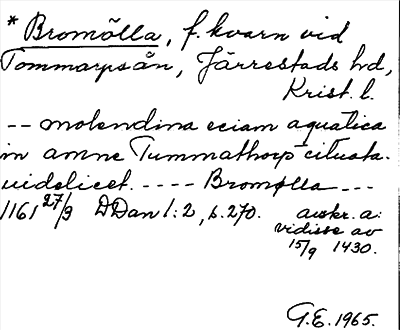 * Bromölla, f. kvarn vid
Tommarpsån, Järrestads hd,
Krist. l.
-- molendina eciam aquatica
in amne Tummathorp cituata.
uidelicet. ---- Bromølla ---
1161 27/9 DDan 1:2, s. 270. avskr. a:
vidisse av
15/9 1430.
G.E. 1965.